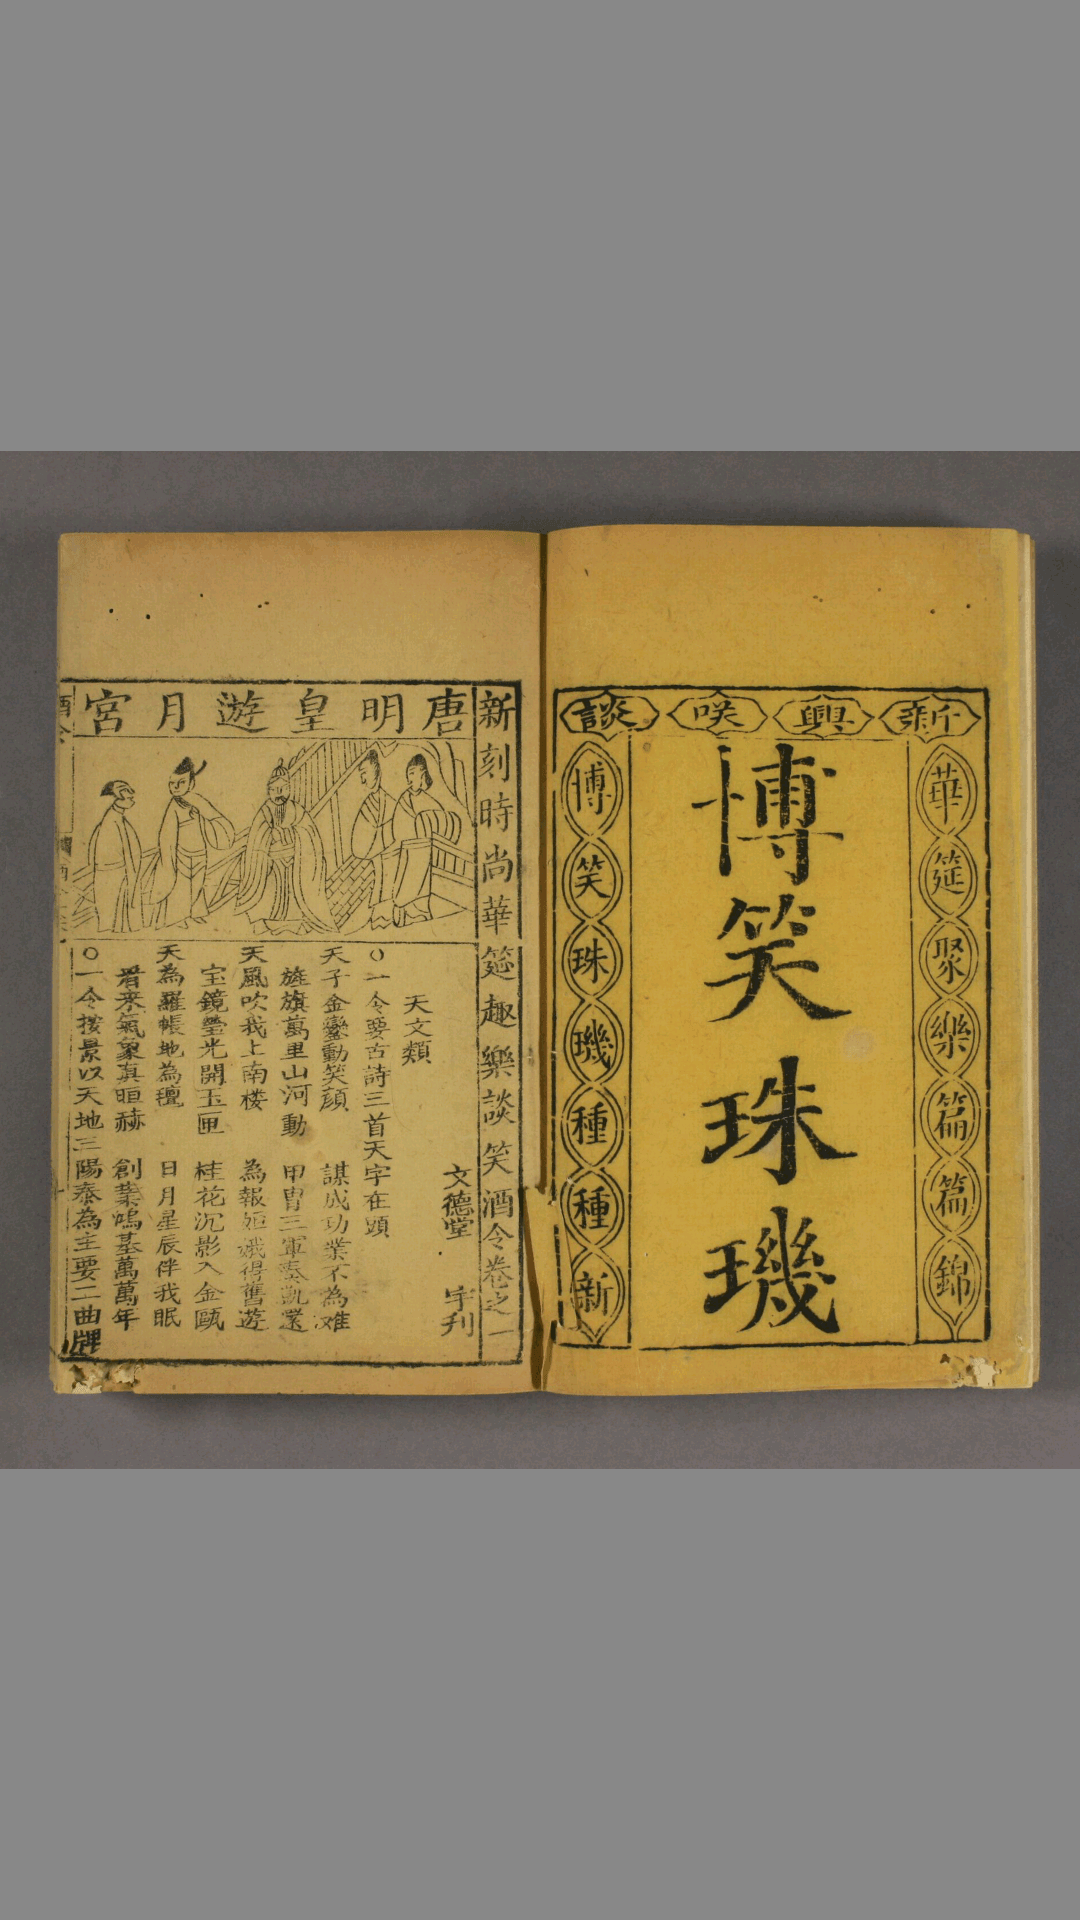 新興咲談
華筵聚樂篇篇錦
博笑珠璣
博笑珠璣種種新
新刻時尚華筵趣樂談笑酒令卷之一
唐明皇遊月宮
文德堂　宇刊
天文類
○一令要古詩三首天字在頭
天子金鑾動笑顔　謀成功業不為难
旌旗萬里山河動　甲冑三軍奏凱還
天風吹我上南楼　為報姮娥得舊遊
宝鏡瑩光開玉匣　桂花沉影入金甌
天為羅帳地為氊　日月星辰伴我眠
看来氣象真暄赫　創業鴻基萬萬年
○一令按景以天地三陽泰為主要二曲牌